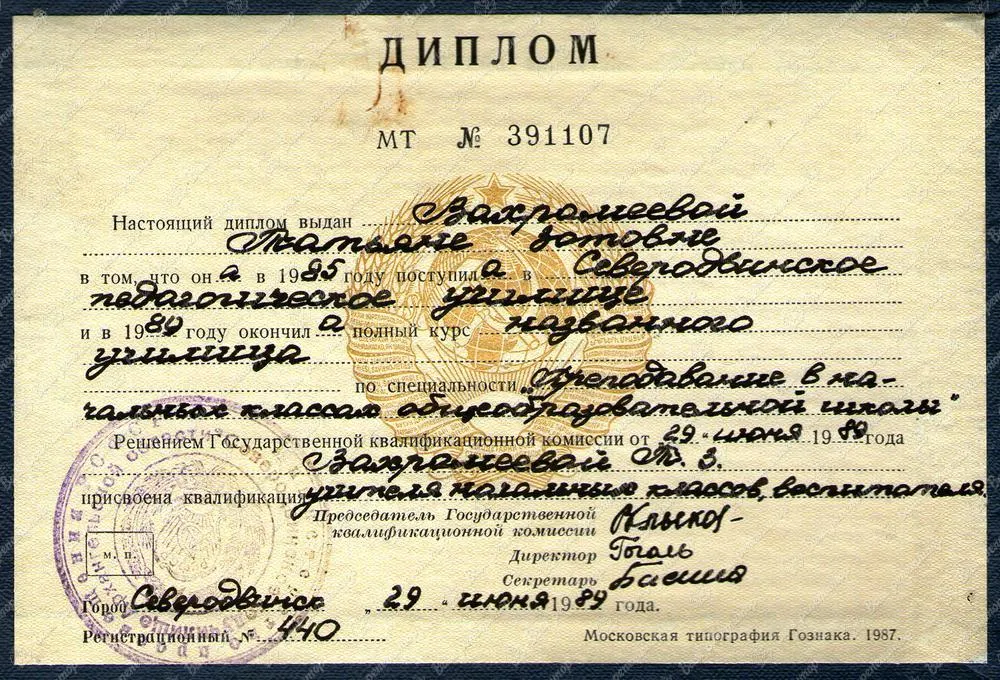 ДИПЛОМ
МТ № 391107
Настоящий диплом выдан Вахрамеевой
Татьяне Зотовне
в том, что он а в 1985 году поступил а в Северодвинское
педагогическое училище
и в 1989 году окончил а полный курс названного
училища
по специальности „Преподавание в на-
чальных классах общеобразовательной школы"
Решением Государственной квалификационной комиссии от „29" июня 1989 года
Вахрамеевой Т. З.
присвоена квалификация учителя начальных классов, воспитателя.
Председатель Государственной
квалификационной комиссии
Директор Гоголь
Секретарь
м. п.
Город Северодвинск „29" июня 1989 года.
Регистрационный № 440
Московская типография Гознака. 1987.